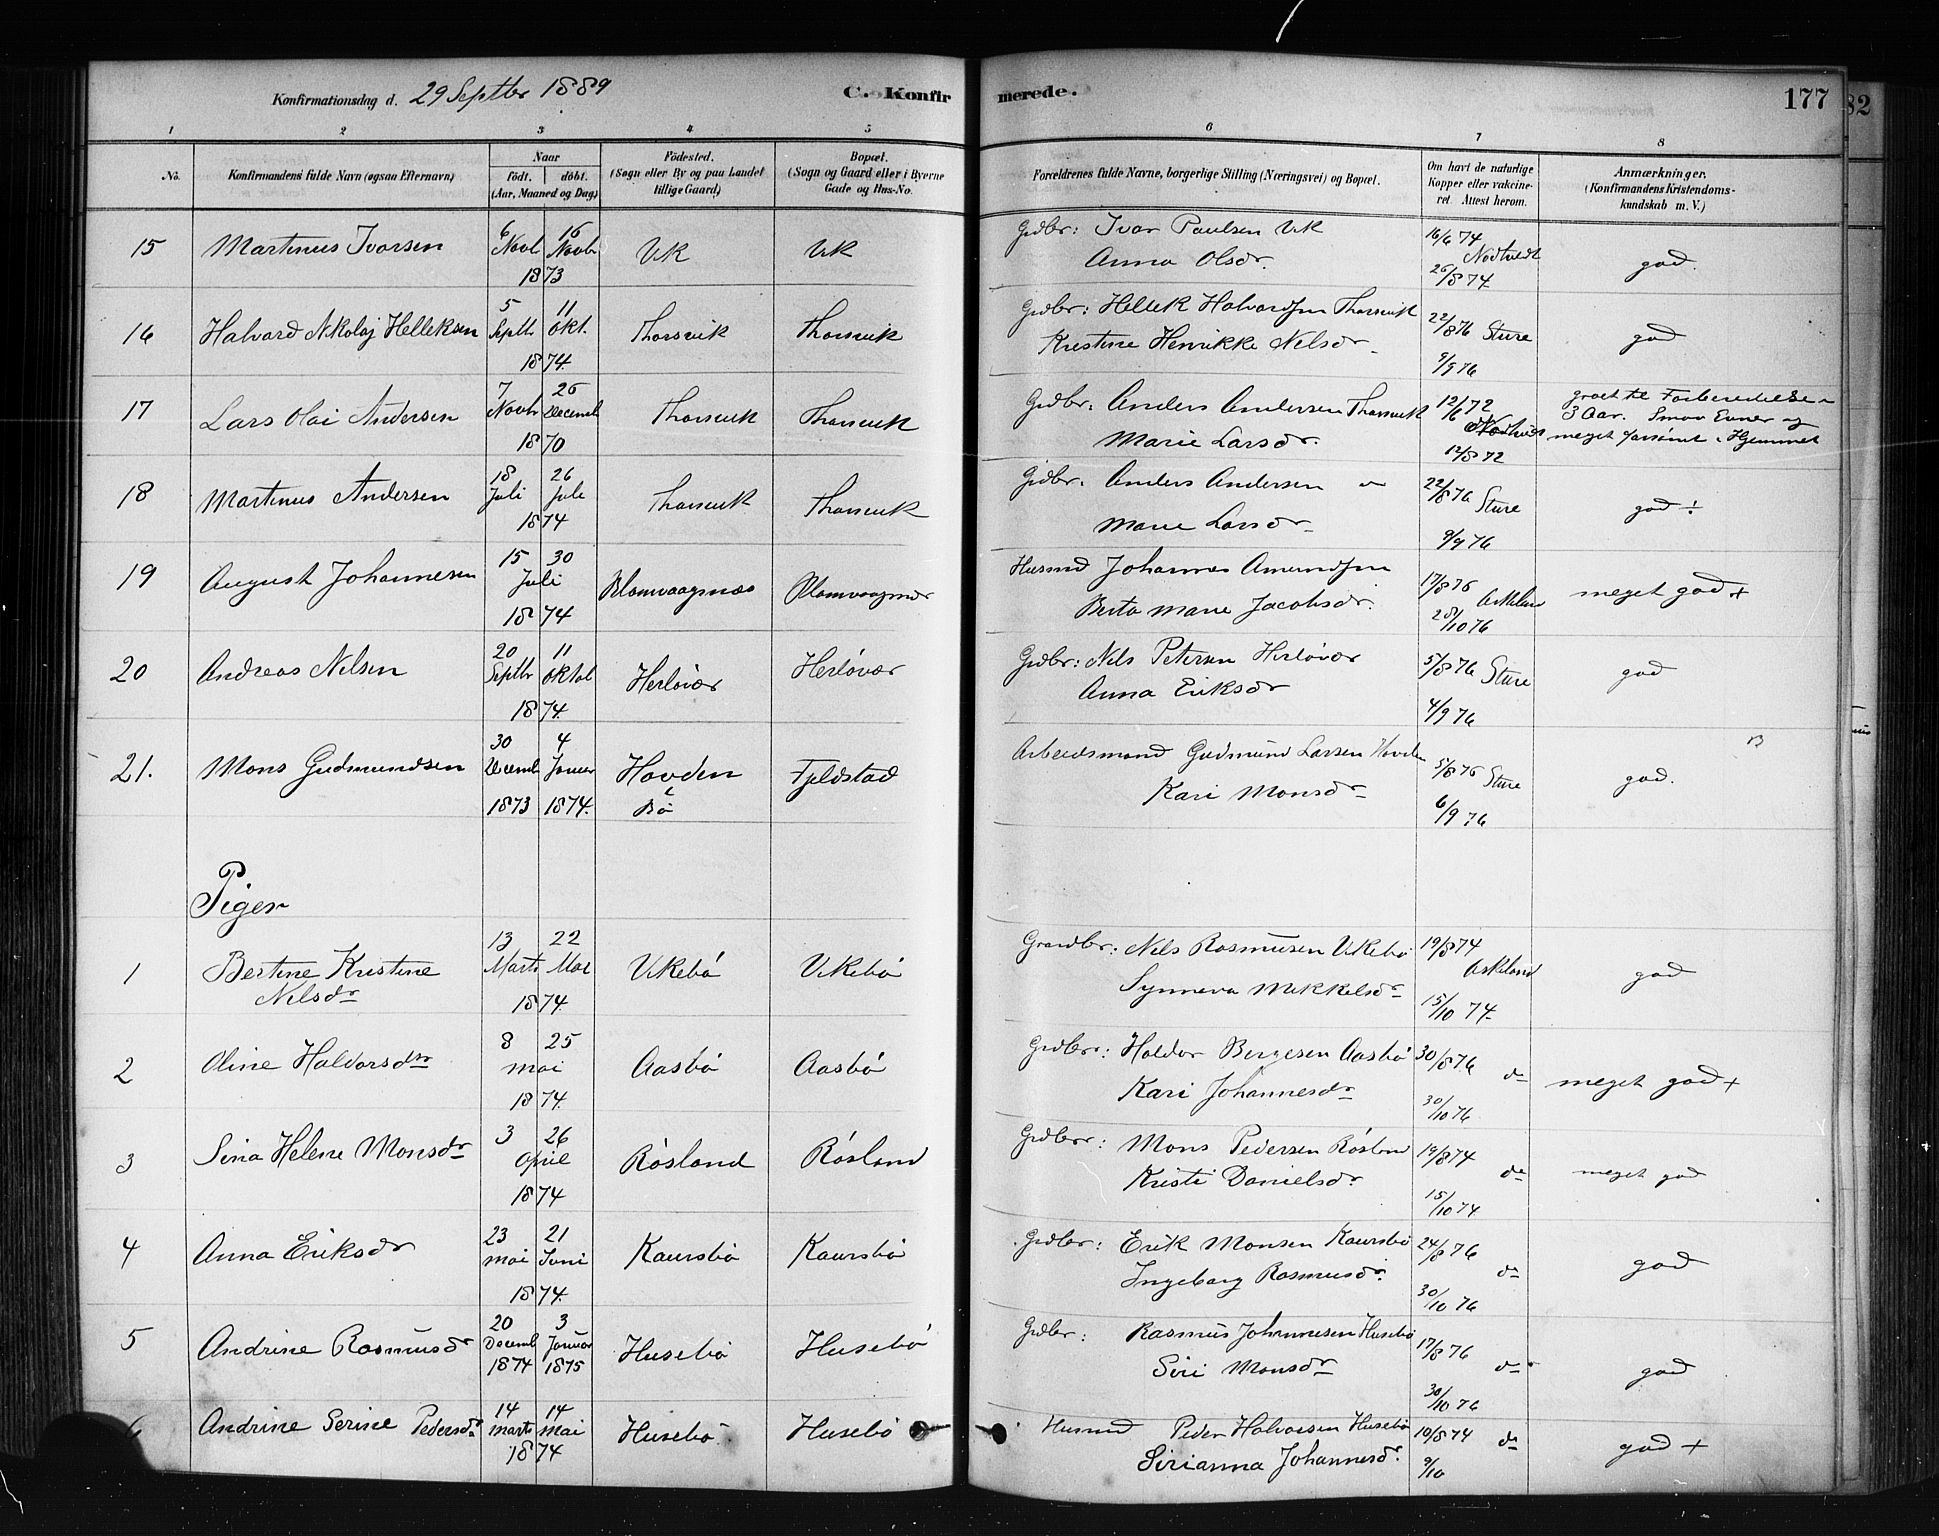 Konfirmationsdag d. 29 Septbr 1889 C. Konfirmerede. 177
82
1 2 3 4 5 6 7 8
No. Konfirmandens fulde Navn (ogsaa Efternavn) Naar Födt. döbt. (Aar, Maaned og Dag) Födested. (Sogn eller By og paa Landet tillige Gaard) Bopæl. (Sogn og Gaard eller i Byerne Gade og Hus-No. Forældrenes fulde Navne, borgerlige Stilling (Næringsvei) og Bopæl. Om havt de naturlige Kopper eller vakcineret. Attest herom. Anmærkninger. (Konfirmandens Kristendomskundskab m. V.)
15 Martinus Ivarsen 6 Novb 16 Novbr 1873 Vik Vik Grdbr: Ivar Paulsen Vik 16/6 74 Nodtvedt god.
Anna Olsdr. 26/8 74
16 Halvard Nikolaj Helleksen 5 Septb. 11 Okt. 1874. Thorsvik Thorsvik Grdbr: Hellek Halvardsen Thorsvik 22/8 76 Sture god
Kristine Henrikke Nelsdr 9/9 76
17 Lars Olai Andersen 7 Novbr 26 Decemb 1870 Thorsvik Thorsvik Grdbr. Anders Andersen Thorsvik 12/6 72 Nodtvedt gaaet til Forberedelse
3 Aar. Smaa Evner og
Marie Larsdr. 12/8 72 meget forsömt i Hjemmet
18 Martinus Andersen 18 Juli 26 Juli 1874 Thorsvik Thorsvik Grdbr. Anders Andersen 22/8 76 Sture god ÷
Marie Larsdr 9/9 76
19 August Johannesen 15 30 Juli 1874 Blomvaagnæs Blomvaagnæs Husmd Johannes Amundsen 17/8 76 Askeland meget god +
Berta Marie Jacobsdr. 28/10 76
20 Andreas Nilsen 20 Septbr 11 Oktob 1874. Herlövær Herlövær Grdbr: Nils Petersen Herlövær 5/8 76 Sture god
Anna Eriksdr 4/9 76
21. Mons Gudmundsen 30 Decemb 1873 4 Januar 1874. Hovden i Bö Fjeldstad Arbeidsmand Gudmund Larsen Hovden 5/8 76 Sture god.
Kari Monsdr 6/9 76
Piger
1 Bertine Kristine Nilsdr 13 Marts 22 Mai 1874. Vikebö Vikebö Grdbr: Nils Rasmusen Vikebö 19/8 74 Askeland god
Synneva Mikkelsdr 15/10 74.
2 Oline Haldorsdtr 8 25 mai 1874. Aasbö Aasbö Grdbr: Haldor Børgesen Aasbö 30/8 76 do meget god +
Kari Johannesdr 30/10 76
3 Sina Helene Monsdr 3 26 April 1874 Rösland Rösland Grdbr: Mons Pedersen Rösland 19/8 74 do meget god
Kristi Danielsdr. 15/10 74
4 Anna Eriksdr 23 mai 21 Juni 1874. Kaursbö Kaursbö Grdbr: Erik Monsen Kaursbö 24/8 76 do god
Ingeborg Rasmusdr. 30/10 76
5 Andrine Rasmusdr 20 Decemb 1874 3 Januar 1875 Husebö Husebö Grdbr: Rasmus Johannesen Husebö 17/8 76 do god
Siri Monsdr 30/10 76
6 Andrine Serine Pedersdr 14 marts 14 Mai 1874 Husebö Husebö Husmd Peder Halvorsen Husebö 19/8 74 do god +
Sirianna Johannesdr. 9/10